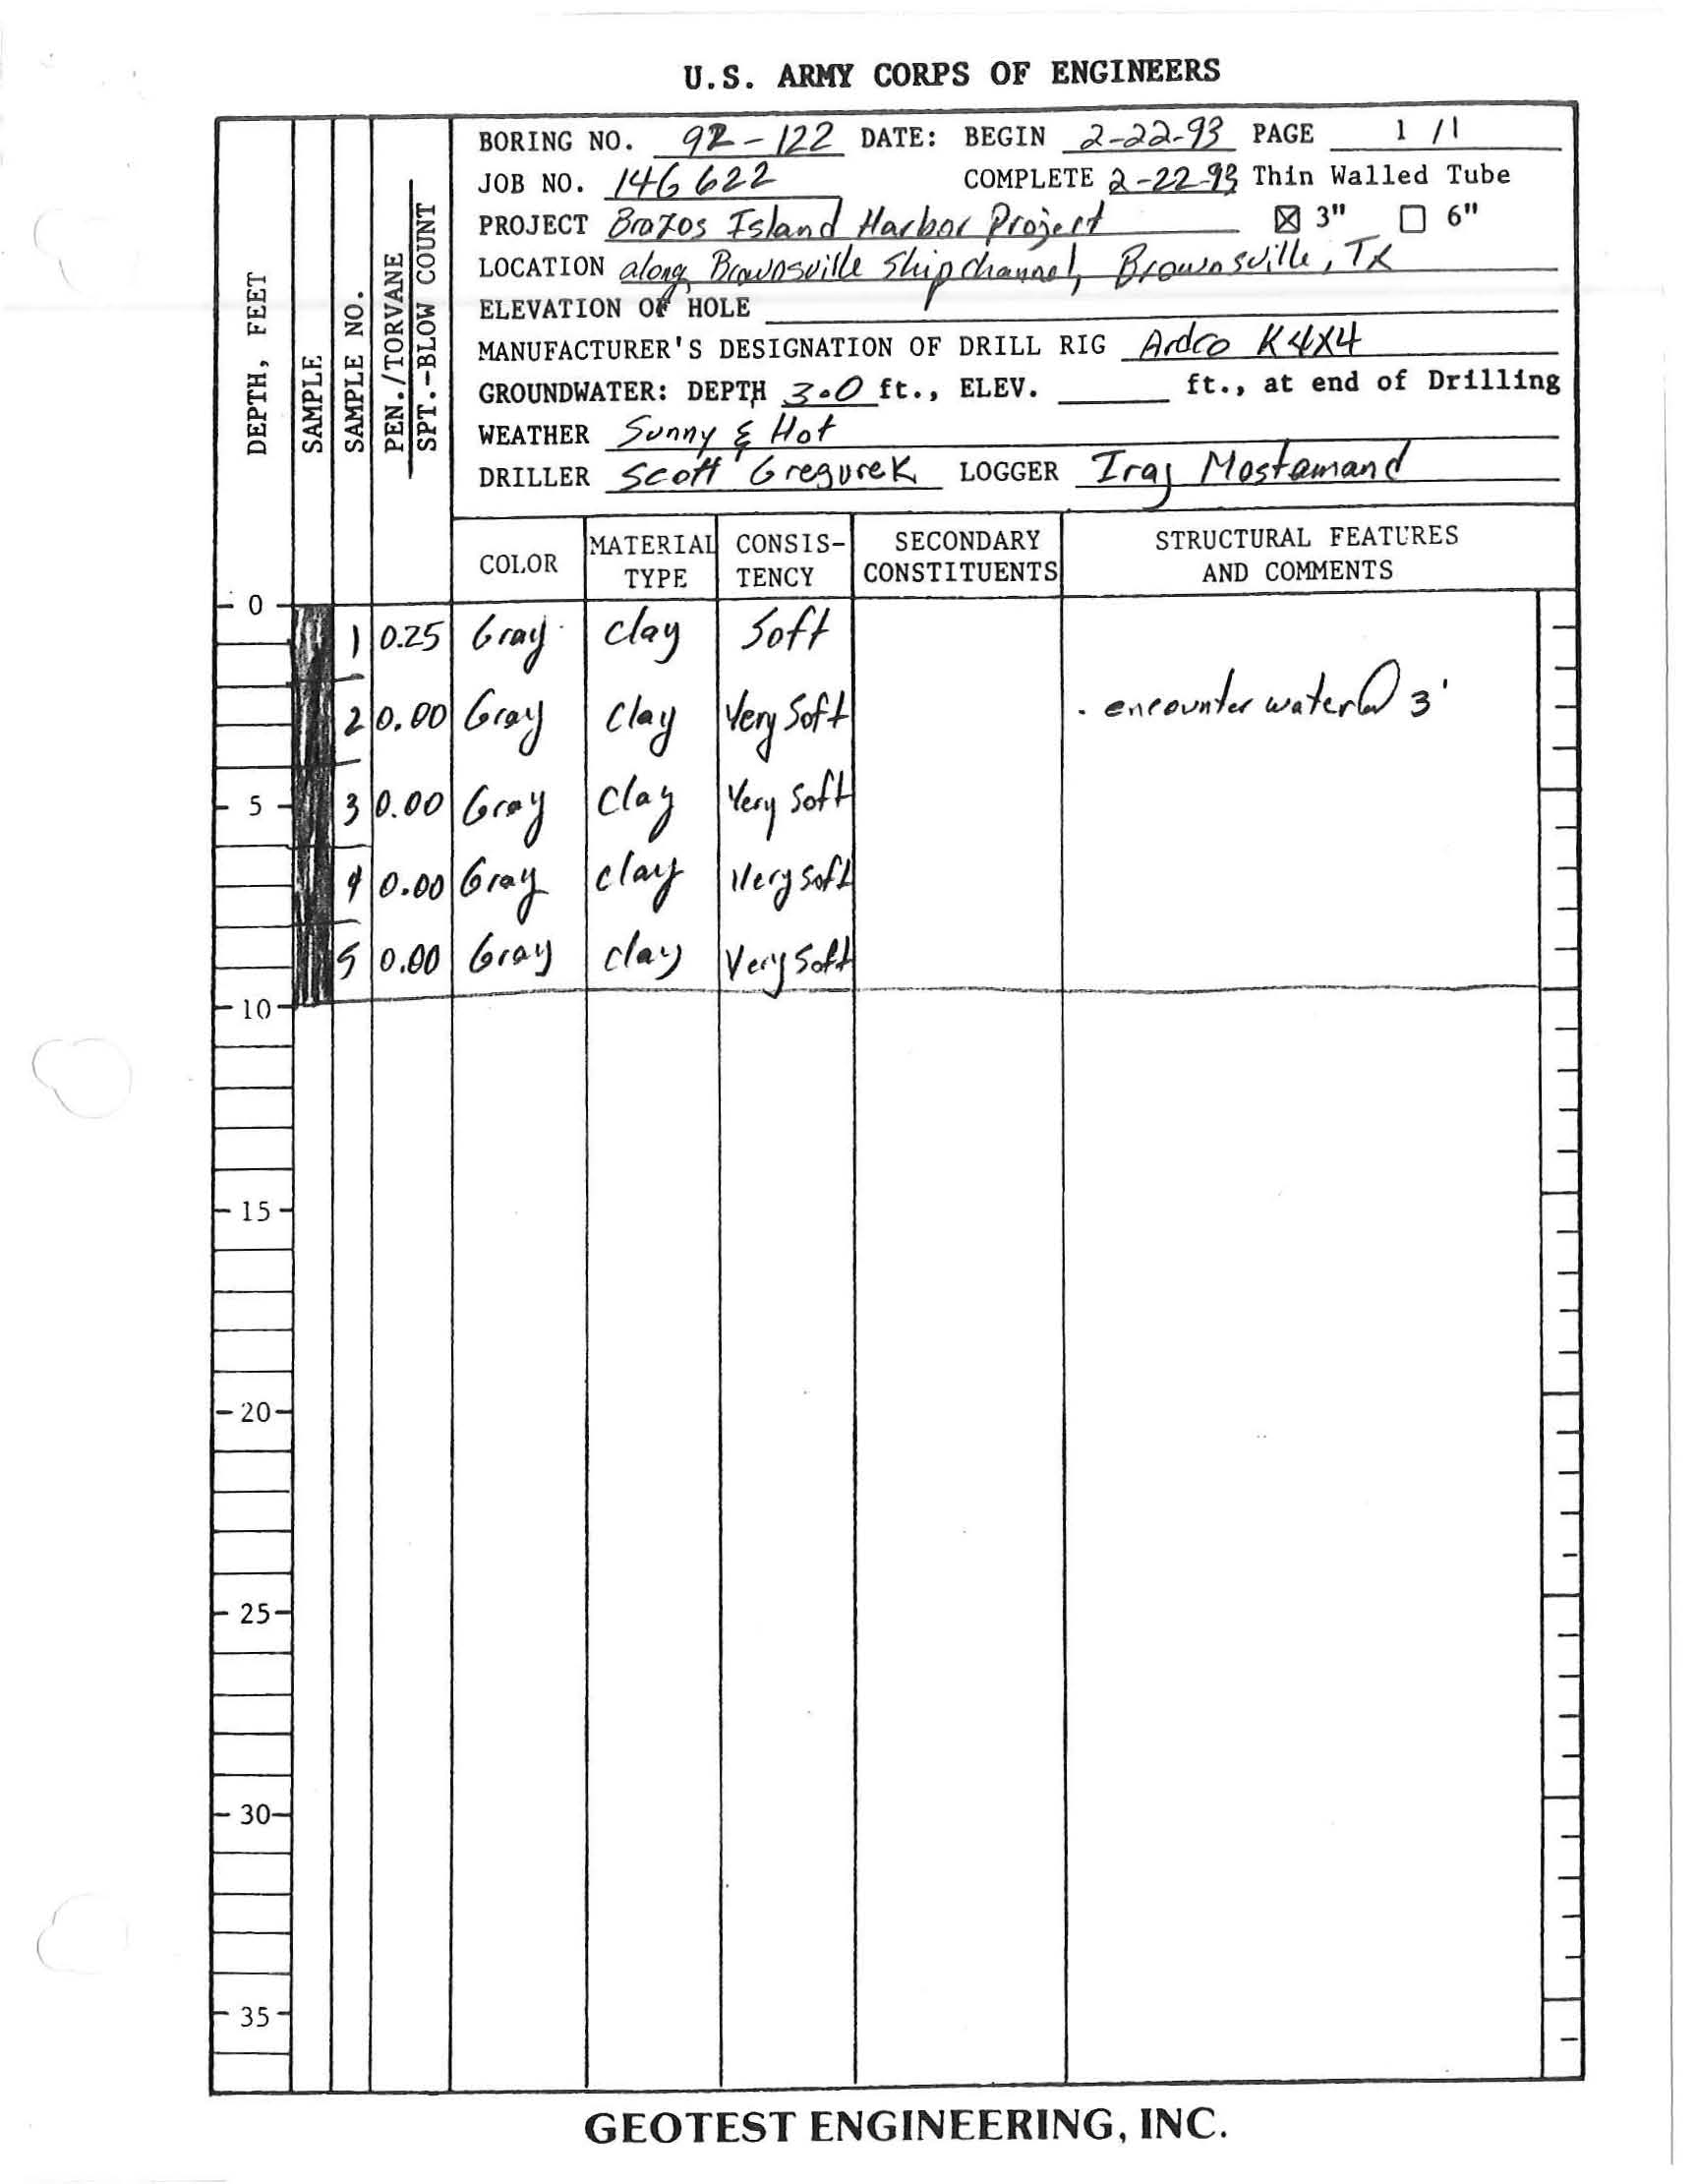 U.S. ARMY CORPS OF ENGINEERS
BORING NO. 92-122 DATE: BEGIN 2-22-93 PAGE 1 / 1
JOB NO. 14G622 COMPLETE 2-22-93 Thin Walled Tube
PROJECT Brazos Island Harbor Project ☒ 3" ☐ 6"
LOCATION along Brownsville Ship channel, Brownsville, TX
ELEVATION OF HOLE
MANUFACTURER'S DESIGNATION OF DRILL RIG Ardco K4X4
GROUNDWATER: DEPTH 3.0 ft., ELEV. ft., at end of Drilling
WEATHER Sunny & Hot
DRILLER Scott Gregurek LOGGER Iraj Mostamand
DEPTH, FEET
SAMPLE
SAMPLE NO.
PEN./TORVANE
SPT.-BLOW COUNT
COLOR MATERIAL TYPE CONSIS-TENCY SECONDARY CONSTITUENTS STRUCTURAL FEATURES AND COMMENTS
0
1 0.25 Gray clay Soft
2 0.00 Gray clay Very Soft - encounter water @ 3'
5 3 0.00 Gray clay Very Soft
4 0.00 Gray clay Very soft
5 0.00 Gray clay Very Soft
10
15
20
25
30
35
GEOTEST ENGINEERING, INC.